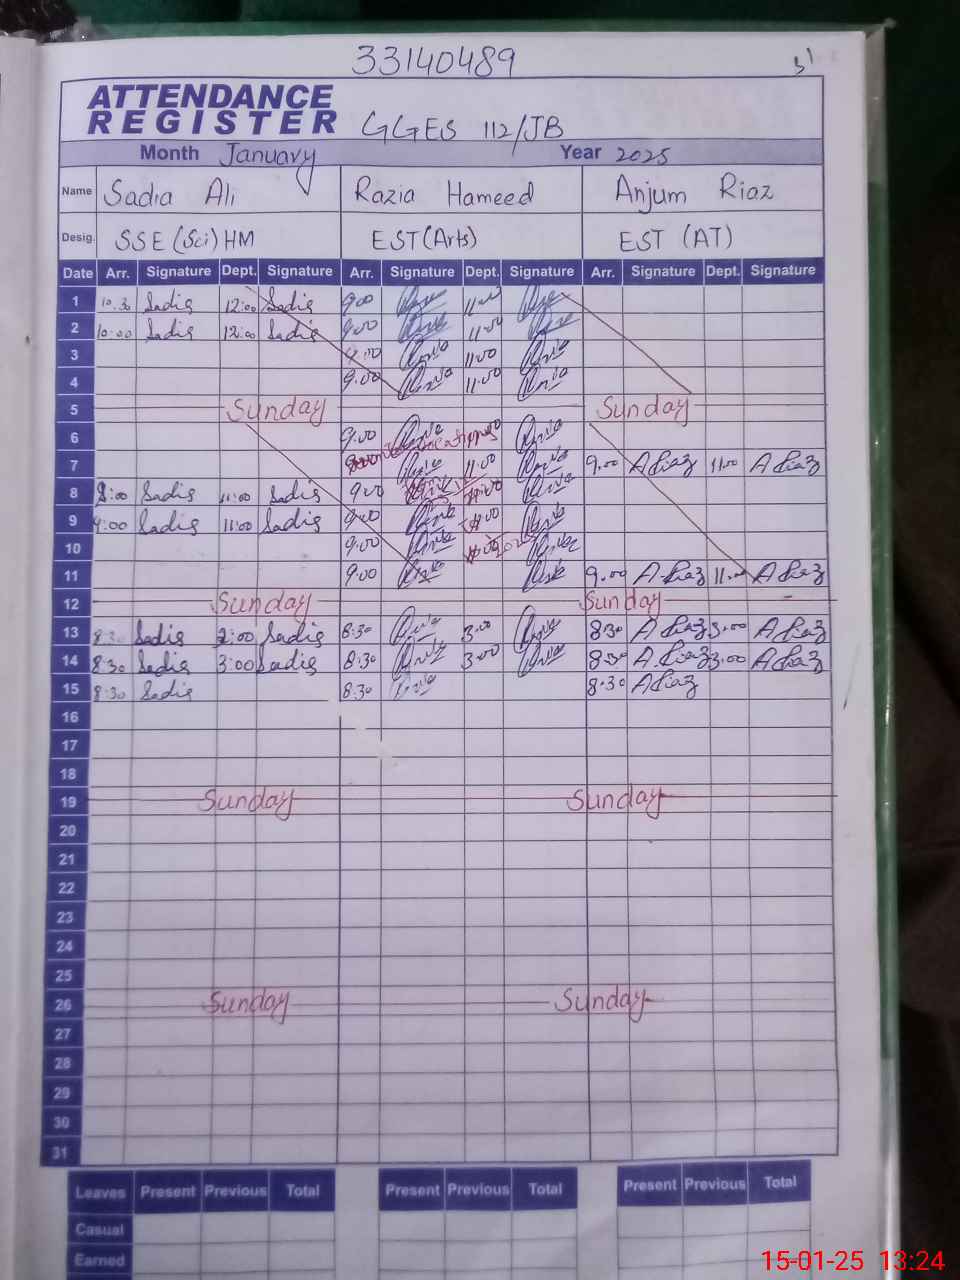 33140489
ATTENDANCE
REGISTER GGES 112/JB
Month January Year 2025
Name Sadia Ali Razia Hameed Anjum Riaz
Desig. SSE (Sci) HM EST (Arts) EST (AT)
Date Arr. Signature Dept. Signature Arr. Signature Dept. Signature Arr. Signature Dept. Signature
1 10.30 Sadia 12:00 Sadia 9:00 11:00
2 10:00 Sadia 12:00 Sadia 9:00 11:00
3 9:00 11:00
4 9:00 11:00
5 Sunday Sunday
6 9:00
7 11:00 9:00 A Riaz 11:00 A Riaz
8 8:00 Sadia 11:00 Sadia 9:00
9 9:00 Sadia 11:00 Sadia 9:00
10 9:00
11 9:00 9:00 A Riaz 11:00 A Riaz
12 Sunday Sunday
13 8:30 Sadia 2:00 Sadia 8:30 3:00 8:30 A Riaz 3:00 A Riaz
14 8:30 Sadia 3:00 Sadia 8:30 3:00 8:30 A Riaz 3:00 A Riaz
15 8:30 Sadia 8:30 8:30 A Riaz
16
17
18
19 Sunday Sunday
20
21
22
23
24
25
26 Sunday Sunday
27
28
29
30
31
Leaves Present Previous Total Present Previous Total Present Previous Total
Casual
Earned
15-01-25 13:24